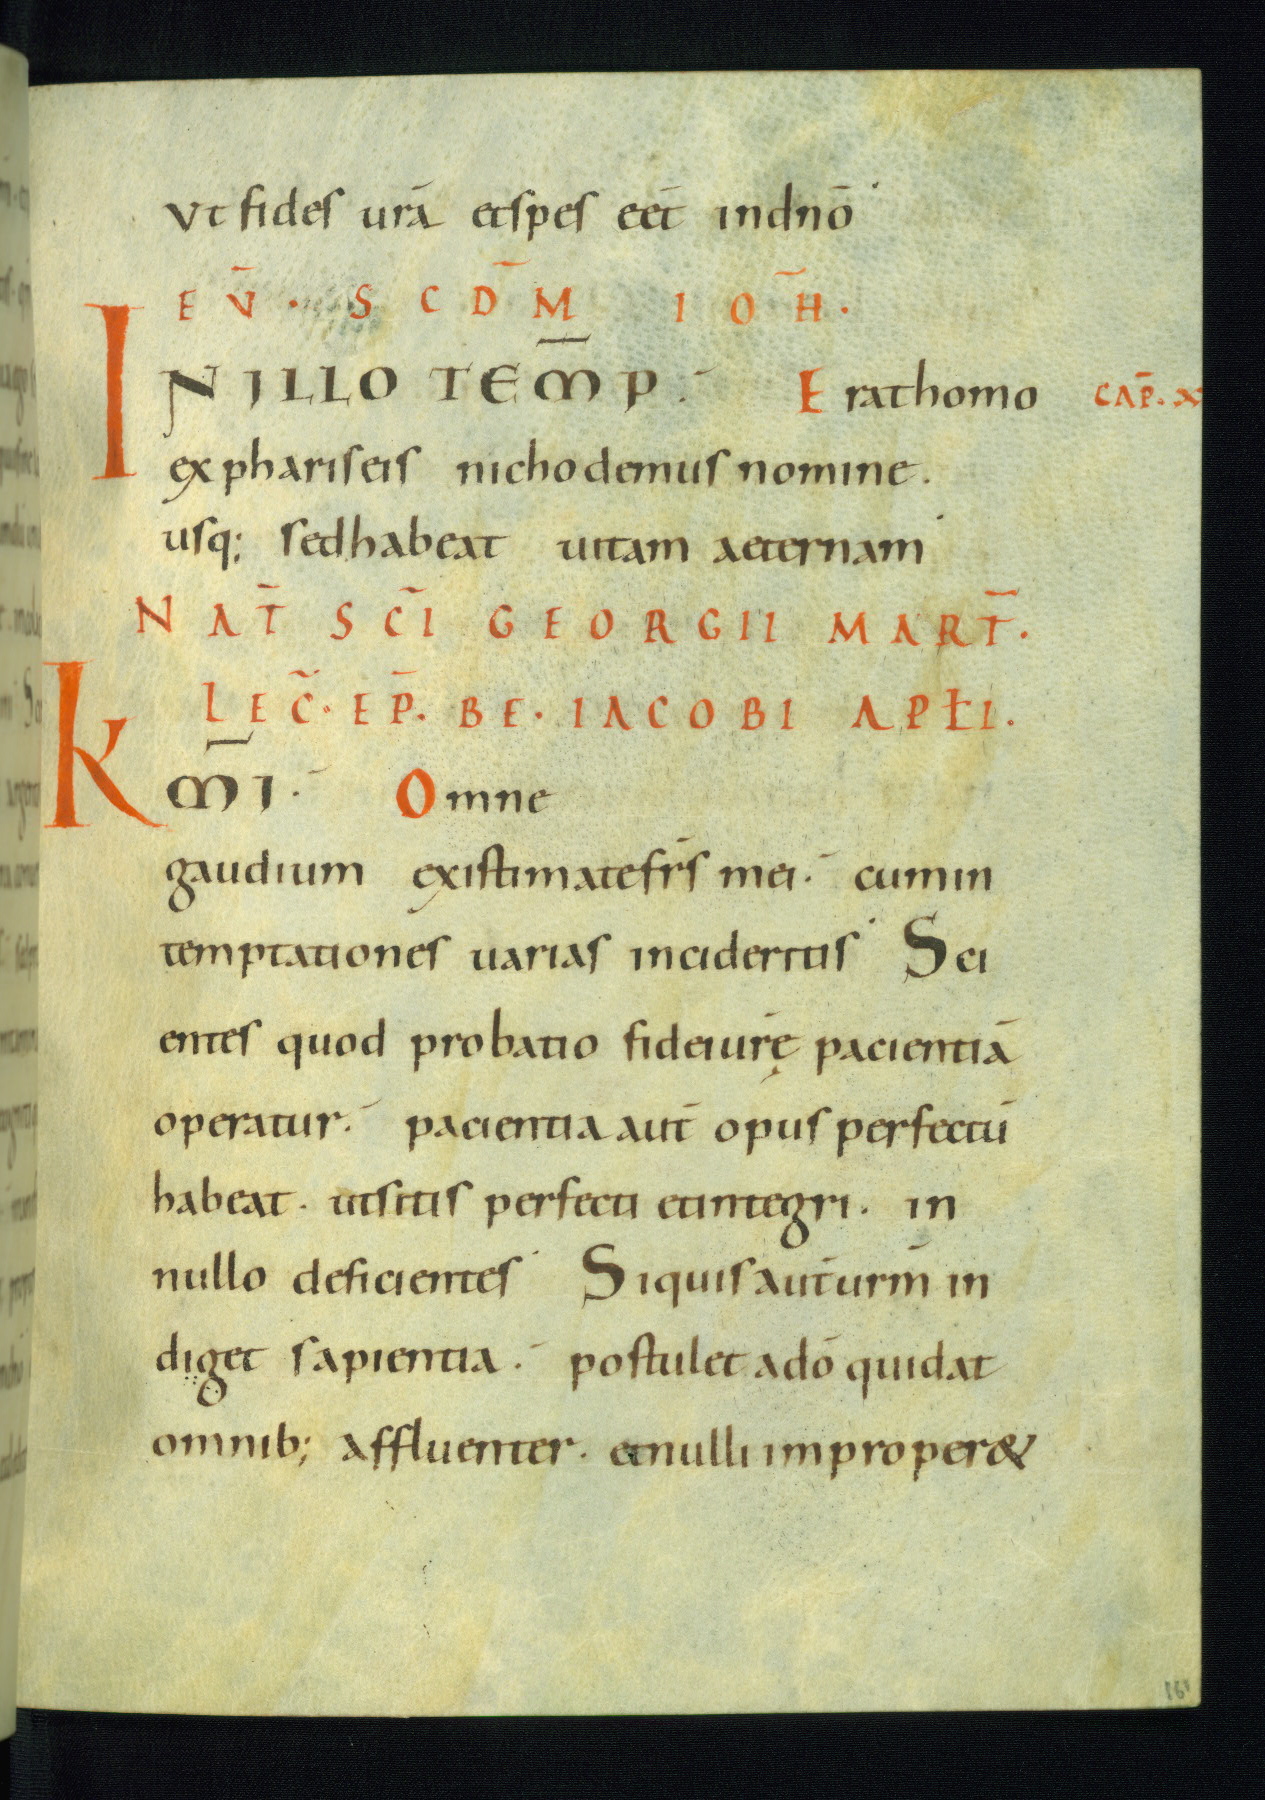 Vt fides urā et spes eēt in dnō
EV̄. SCDM̄ IOH̄.
IN ILLO TEM̄P. Erat homo CAP̄. X
ex phariseis nichodemus nomine.
usq; sed habeat uitam aeternam
NAT̄ SC̄I GEORGII MART̄.
LEC̄. EP̄. BE. IACOBI APŁI.
KM̄I. Omne
gaudium existimate fr̄s mei. cum in
temptationes uarias incideritis Sci
entes quod probatio fidei ur̄ę pacientiā
operatur. pacientia aut̄ opus perfectū
habeat. ut sitis perfecti et integri. in
nullo deficientes Si quis aut̄ urm̄ in
diget sapientia. postulet a dō qui dat
omnib; affluenter. et nulli improper&
161